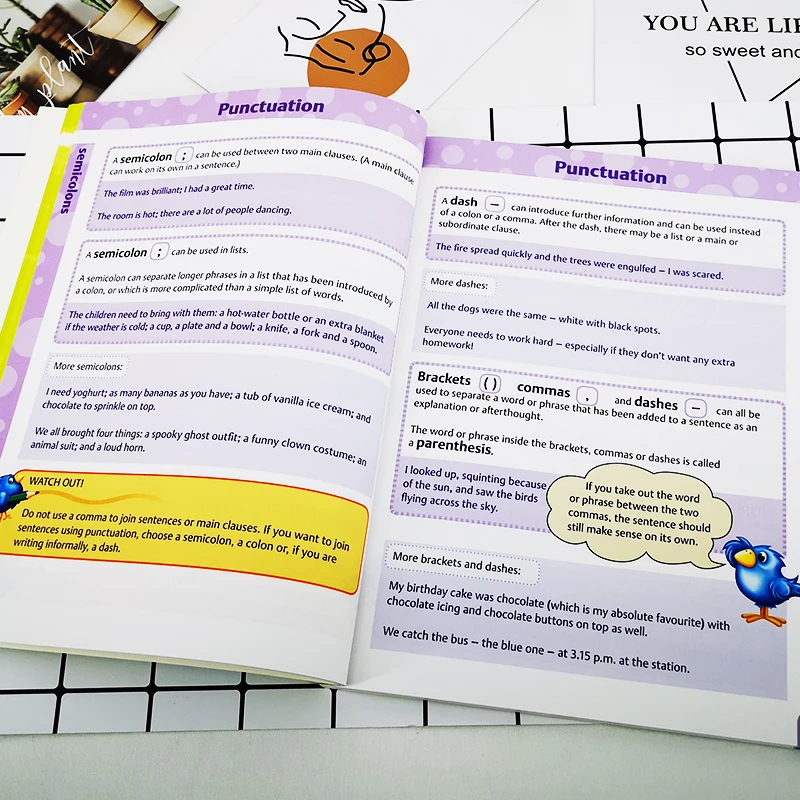 plant
YOU ARE
so sweet and
Punctuation
semicolons
A semicolon ; can be used between two main clauses. (A main clause
can work on its own in a sentence.)
The film was brilliant; I had a great time.
The room is hot; there are a lot of people dancing.
A semicolon ; can be used in lists.
A semicolon can separate longer phrases in a list that has been introduced by
a colon, or which is more complicated than a simple list of words.
The children need to bring with them: a hot-water bottle or an extra blanket
if the weather is cold; a cup, a plate and a bowl; a knife, a fork and a spoon.
More semicolons:
I need yoghurt; as many bananas as you have; a tub of vanilla ice cream; and
chocolate to sprinkle on top.
We all brought four things: a spooky ghost outfit; a funny clown costume; an
animal suit; and a loud horn.
WATCH OUT!
Do not use a comma to join sentences or main clauses. If you want to join
sentences using punctuation, choose a semicolon, a colon or, if you are
writing informally, a dash.
Punctuation
A dash – can introduce further information and can be used instead
of a colon or a comma. After the dash, there may be a list or a main or
subordinate clause.
The fire spread quickly and the trees were engulfed – I was scared.
More dashes:
All the dogs were the same – white with black spots.
Everyone needs to work hard – especially if they don't want any extra
homework!
Brackets ( ) commas , and dashes – can all be
used to separate a word or phrase that has been added to a sentence as an
explanation or afterthought.
The word or phrase inside the brackets, commas or dashes is called
a parenthesis.
I looked up, squinting because
of the sun, and saw the birds
flying across the sky.
If you take out the word
or phrase between the two
commas, the sentence should
still make sense on its own.
More brackets and dashes:
My birthday cake was chocolate (which is my absolute favourite) with
chocolate icing and chocolate buttons on top as well.
We catch the bus – the blue one – at 3.15 p.m. at the station.